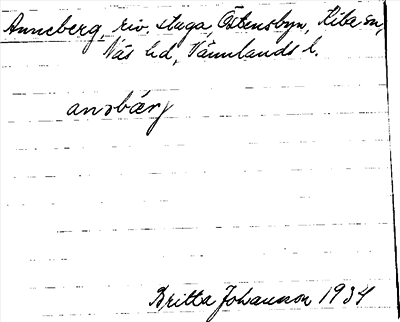 Anneberg, riv. stuga, Östensbyn, Kila sn,
Näs hd, Värmlands l.
anəbærj
Britta Johansson 1934